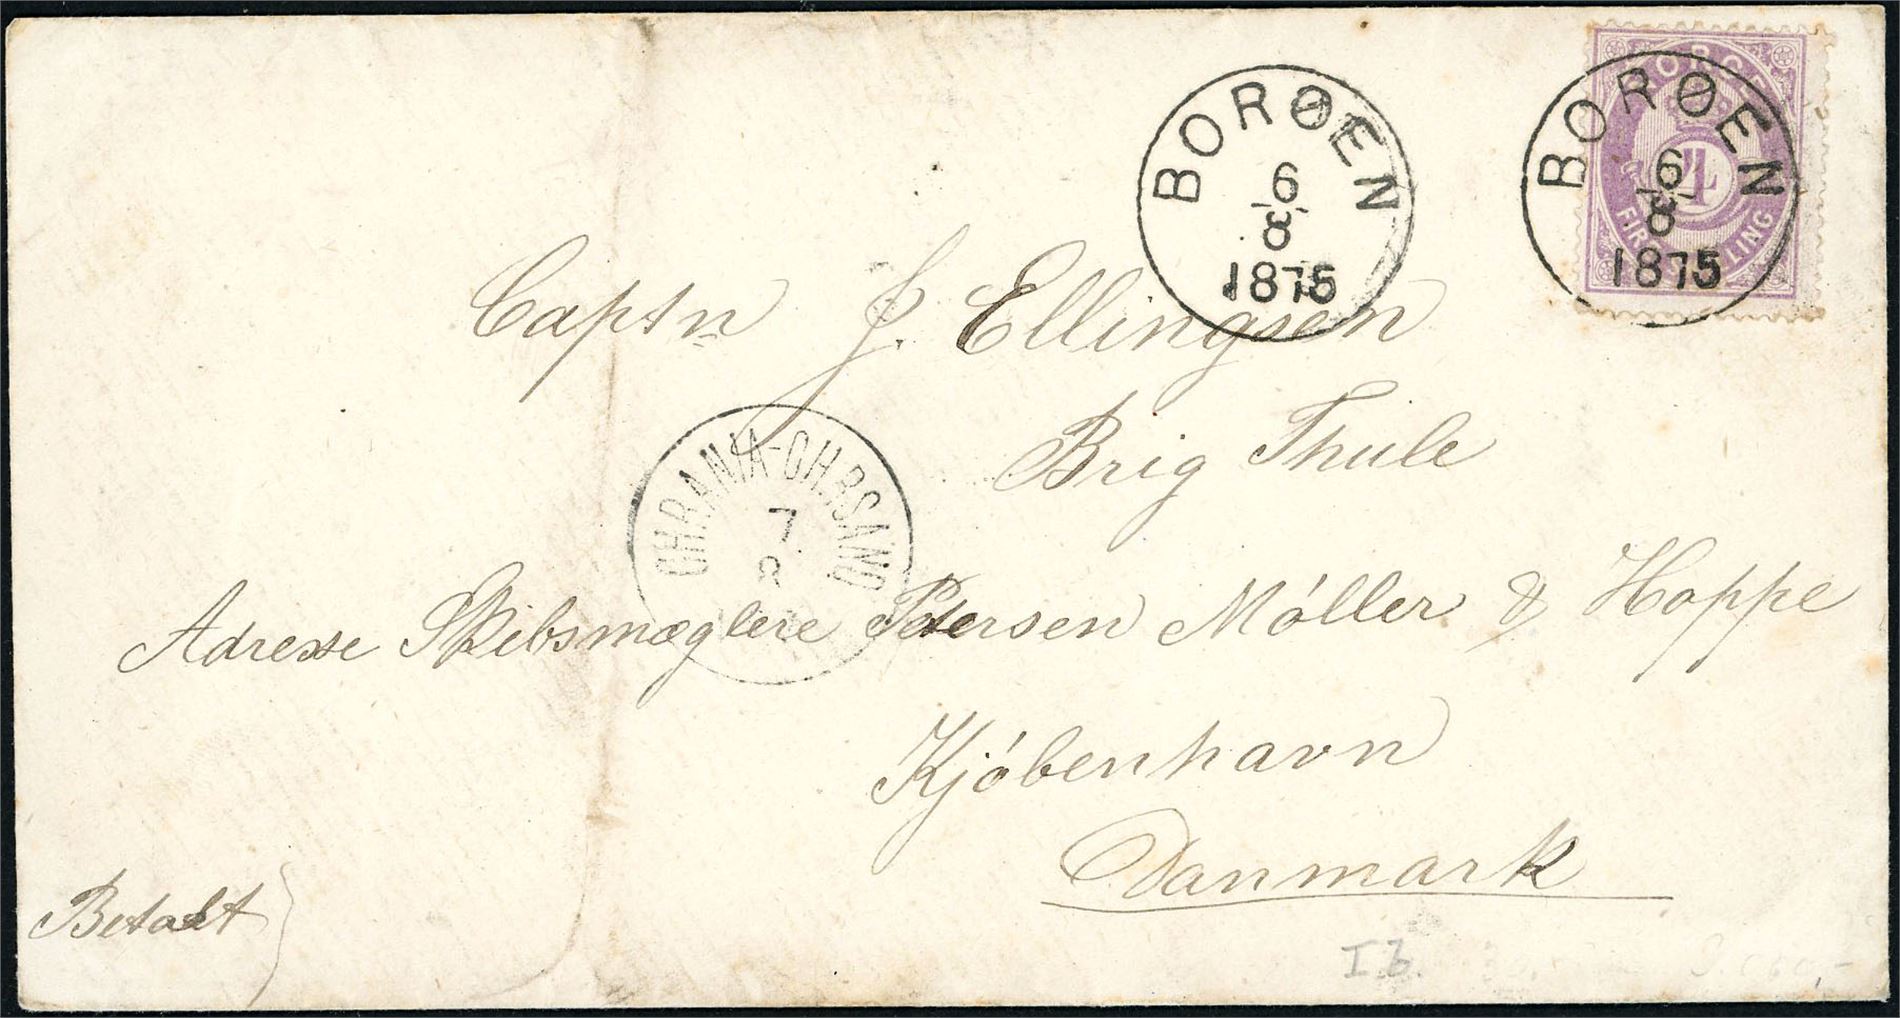 BORØEN
6
8
1875
NORGE
4
FIRE SKILLING
BORØEN
6
8
1875
Captn J. Ellingsen
Brig Thule
CHRANIA-CH.RSAND
7
8
Adresse Skibsmæglere Petersen Móller & Hoppe
Kjóbenhavn
Danmark
Betalt
I b.